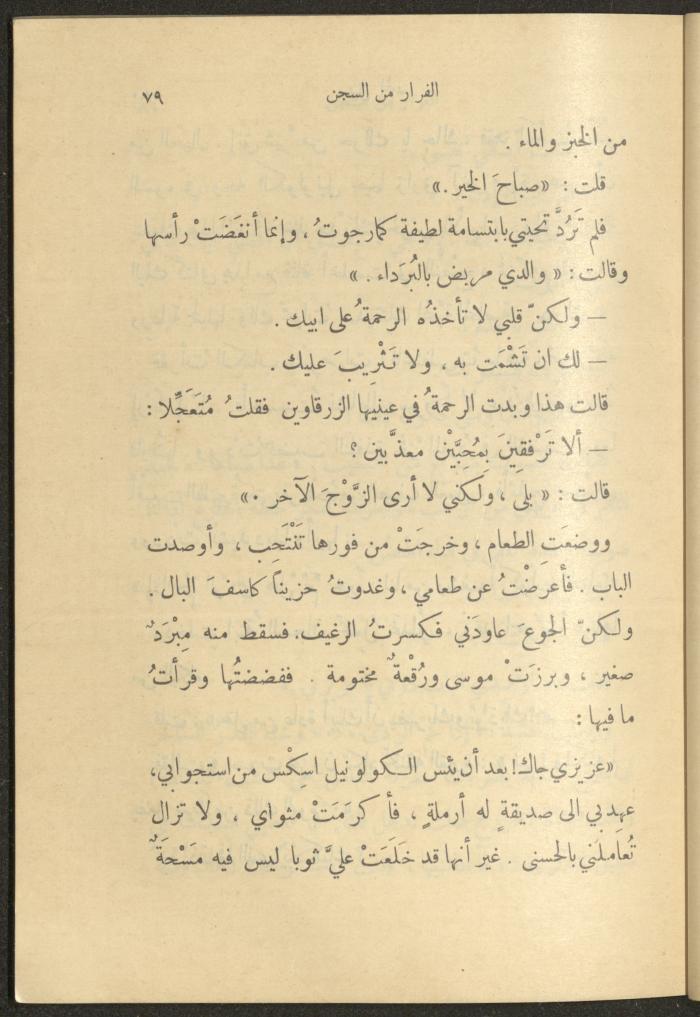 الفرار من السجن ٧٩
من الخبز والماء .
قلت : «صباحَ الخير .»
فلم تَرُدَّ تحيتي بابتسامة لطيفة كما رجوتُ ، وإنما أنغَضَتْ رأسها
وقالت : « والدي مريض بالبُرَداء . »
— ولكنّ قلبي لا تأخذُه الرحمةُ على ابيك .
— لك ان تَشْمَت به ، ولا تَثْرِيبَ عليك .
قالت هذا وبدت الرحمةُ في عينيها الزرقاوين فقلتُ مُتَعَجِّلا :
— ألا تَرْفقِينَ بِمُحِبَّيْن معذَّبين ؟
قالت : « بلى ، ولكني لا أرى الزَّوْجَ الآخر ٠»
ووضعَتِ الطعام ، وخرجَتْ من فورها تَنْتَحِب ، وأوصدت
الباب . فأعرَضْتُ عن طعامي ، وغدوتُ حزيناً كاسفَ البال .
ولكنّ الجوعَ عاودَني فكسرتُ الرغيف . فسقط منه مِبْرَدٌ
صغير ، وبرزَتْ موسى ورُقْعةٌ مختومة . ففضضتُها وقرأتُ
ما فيها :
«عزيزي جاك! بعد أن يئس الكولونيل اسِكْس من استجوابي،
عهِد بي الى صديقةٍ له أرملةٍ ، فأ كرَمَتْ مثواي ، ولا تزال
تُعامِلُني بالحسنى . غير أنها قد خَلَعَتْ عليَّ ثوبا ليس فيه مَسْحَةٌ